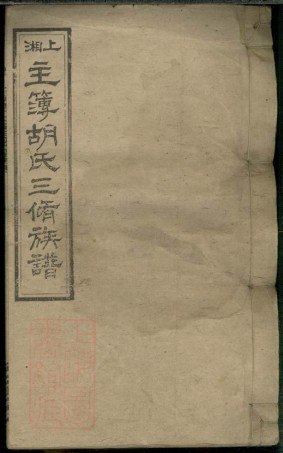 上湘
主簿胡氏三脩族譜